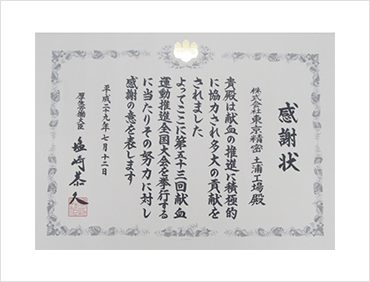 感謝状
株式会社東京精密 土浦工場殿
貴殿は献血の推進に積極的
に協力され多大の貢献を
されました
よってここに第五十三回献血
運動推進全国大会を挙行する
に当たりその努力に対し
感謝の意を表します
平成二十九年七月十二日
厚生労働大臣
塩崎恭久